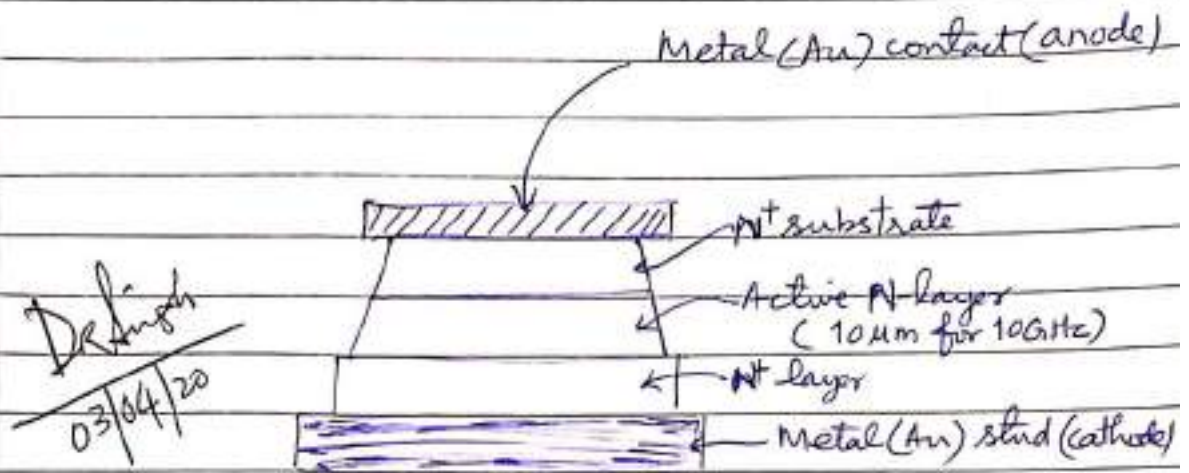 Metal (Au) contact (anode)
N⁺ substrate
Active N-layer
(10 μm for 10GHz)
N⁺ layer
Metal (Au) stud (cathode)
DR Singh
03/04/20